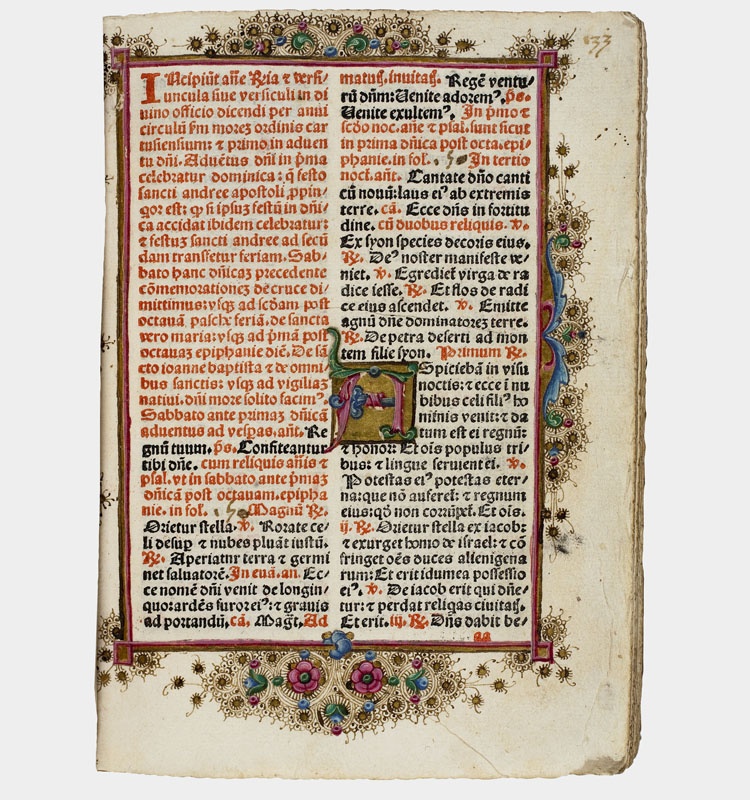 INcipiūt añe R̃ia ⁊ versi/
uncula siue versiculi in di
uino officio dicendi per anni
circulū s̄m morez ordinis car
tusiensium: ⁊ primo in aduen
tu dñi. Aduētus dñi in p̄ma
celebratur dominica: q̄ festo
sancti andree apostoli ꝓpin/
qor est: ꝙ si ipsuz festū in dñi/
ca accidat ibidem celebratur:
⁊ festuz sancti andree ad secū
dam transfetur feriam. Sab/
bato hanc dñicaz precedente
cōmemorationez de cruce di/
mittimus: vsqz ad scđam post
octauā pasche feriā. de sancta
vero maria: vsqz ad p̄mā post
octauaz epiphanie diē. De sā/
cto ioanne baptista ⁊ de omni/
bus sanctis: vsqz ad vigiliaz
natiui. dñi more solito facim⁹.
Sabbato ante primaz dñicā
aduentus ad vesꝑas. añt. Re
gnū tuum. p̄s. Confiteantur
tibi dñe. cum reliquis añis ⁊
psal. vt in sabbato ante p̄maz
dñicā post octauam. epipha/
nie. in fol. Magnū R̃.
Orietur stella. v̄. Rorate ce/
li desuꝑ ⁊ nubes pluāt iustū.
R̃. Aperiatur terra ⁊ germi
net saluatorē. In euā. an. Ec/
ce nomē dñi venit de longin/
quo: ardēs furor ei⁹: ⁊ grauis
ad portandū. cā. Magt̄. Ad
matut̄. inuitat̄. Regē ventu/
rū dñm: Uenite adorem⁹. p̄s.
Uenite exultem⁹. In p̄mo ⁊
scđo noc. añe ⁊ psal. sunt sicut
in prima dñica post octa. epi/
phanie. in fol. In tertio
noct. añt. Cantate dño canti
cū nouū: laus ei⁹ ab extremis
terre. cā. Ecce dñs in fortitu
dine. cū duobus reliquis. v̄.
Ex syon species decoris eius.
R̃. De⁹ noster manifeste ve/
niet. v̄. Egrediet̄ virga de ra
dice iesse. R̃. Et flos de radi
ce eius ascendet. v̄. Emitte
agnū dñe dominatorez terre.
R̃. De petra deserti ad mon
tem filie syon. Primum R̃.
ASpiciebā in visu
noctis: ⁊ ecce ī nu
bibus celi filī ho
minis venit: ⁊ da
tum est ei regnū:
⁊ honor: Et oīs populus tri
bus: ⁊ lingue seruient ei. v̄.
Potestas ei⁹ potestas eter/
na: que nō auferet̄: ⁊ regnum
eius: qđ non corrūpet̄. Et oīs.
ij. R̃. Orietur stella ex iacob:
⁊ exurget homo de israel: ⁊ cō
fringet oēs duces alienigena
rum: Et erit idumea possessio
ei⁹. v̄. De iacob erit qui dñe/
tur: ⁊ perdat reliqas ciuitat̄.
Et erit. iij. R̃. Dñs dabit be/
aa
33